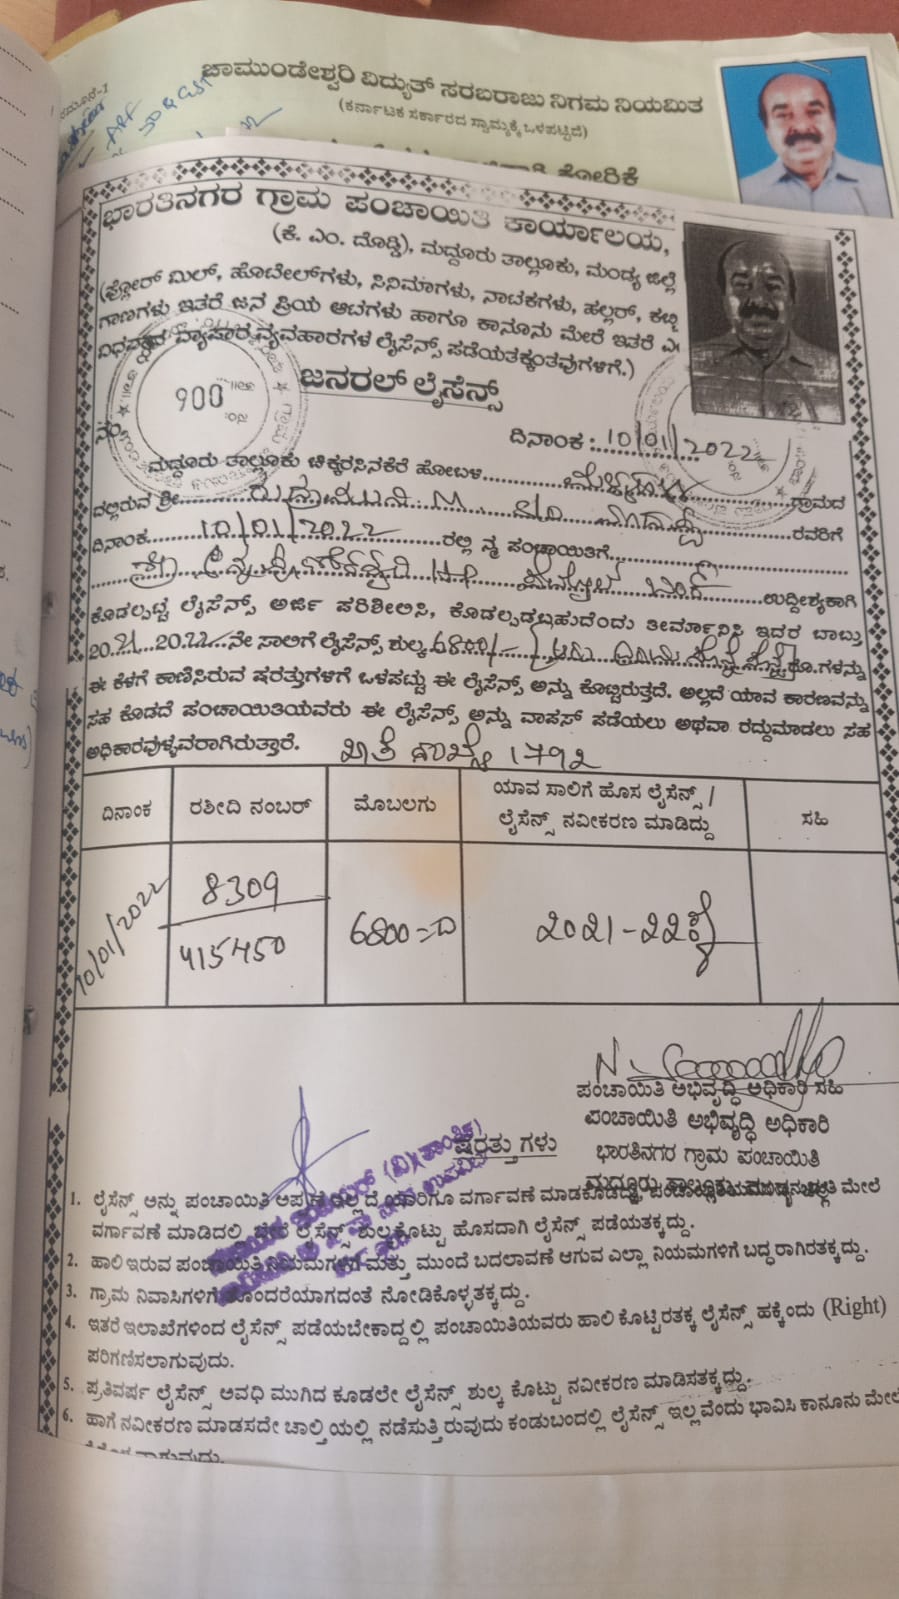 ಚಾಮುಂಡೇಶ್ವರಿ ವಿದ್ಯುತ್ ಸರಬರಾಜು ನಿಗಮ ನಿಯಮಿತ
(ಕರ್ನಾಟಕ ಸರ್ಕಾರದ ಸ್ವಾಮ್ಯಕ್ಕೆ ಒಳಪಟ್ಟಿದೆ)
ಕೋರಿಕೆ
ಭಾರತಿನಗರ ಗ್ರಾಮ ಪಂಚಾಯಿತಿ ಕಾರ್ಯಾಲಯ,
(ಕೆ. ಎಂ. ದೊಡ್ಡಿ), ಮದ್ದೂರು ತಾಲ್ಲೂಕು, ಮಂಡ್ಯ ಜಿಲ್ಲೆ
(ಫ್ಲೋರ್ ಮಿಲ್, ಹೊಟೇಲ್‌ಗಳು, ಸಿನಿಮಾಗಳು, ನಾಟಕಗಳು, ಹಲ್ಲರ್,
ಗಾಣಗಳು ಇತರೆ ಜನ ಪ್ರಿಯ ಆಟಗಳು ಹಾಗೂ ಕಾನೂನು ಮೇರೆ ಇತರೆ
ವಿಧವಾದ ವ್ಯಾಪಾರ ವ್ಯವಹಾರಗಳ ಲೈಸೆನ್ಸ್ ಪಡೆಯತಕ್ಕಂತವುಗಳಿಗೆ.)
ಜನರಲ್ ಲೈಸೆನ್ಸ್
900
ನಂ.
ದಿನಾಂಕ : 10/01/2022
ಮದ್ದೂರು ತಾಲ್ಲೂಕು ಚಿಕ್ಕರಸಿನಕೆರೆ ಹೋಬಳಿ ಗ್ರಾಮದ
ದಲ್ಲಿರುವ ಶ್ರೀ M. ರವರಿಗೆ
ದಿನಾಂಕ 10/01/2022 ರಲ್ಲಿ ನಮ್ಮ ಪಂಚಾಯಿತಿಗೆ
HP ಪೆಟ್ರೋಲ್ ಬಂಕ್ ಉದ್ದೇಶಕ್ಕಾಗಿ
ಕೊಡಲ್ಪಟ್ಟ ಲೈಸೆನ್ಸ್ ಅರ್ಜಿ ಪರಿಶೀಲಿಸಿ, ಕೊಡಲ್ಪಡಬಹುದೆಂದು ತೀರ್ಮಾನಿಸಿ ಇದರ ಬಾಬ್ತು
2021 2022 ನೇ ಸಾಲಿಗೆ ಲೈಸೆನ್ಸ್ ಶುಲ್ಕ 6800/- ರೂ.ಗಳನ್ನು
ಈ ಕೆಳಗೆ ಕಾಣಿಸಿರುವ ಷರತ್ತುಗಳಿಗೆ ಒಳಪಟ್ಟು ಈ ಲೈಸೆನ್ಸ್ ಅನ್ನು ಕೊಟ್ಟಿರುತ್ತದೆ. ಅಲ್ಲದೆ ಯಾವ ಕಾರಣವನ್ನು
ಸಹ ಕೊಡದೆ ಪಂಚಾಯಿತಿಯವರು ಈ ಲೈಸೆನ್ಸ್ ಅನ್ನು ವಾಪಸ್ ಪಡೆಯಲು ಅಥವಾ ರದ್ದುಮಾಡಲು ಸಹ
ಅಧಿಕಾರವುಳ್ಳವರಾಗಿರುತ್ತಾರೆ. 1792
ದಿನಾಂಕ ರಶೀದಿ ನಂಬರ್ ಮೊಬಲಗು ಯಾವ ಸಾಲಿಗೆ ಹೊಸ ಲೈಸೆನ್ಸ್ / ಸಹಿ
ಲೈಸೆನ್ಸ್ ನವೀಕರಣ ಮಾಡಿದ್ದು
10/01/2022 8309 6800=0 2021-22ಕ್ಕೆ
415450
ಪಂಚಾಯಿತಿ ಅಭಿವೃದ್ಧಿ ಅಧಿಕಾರಿ ಸಹಿ
ಪಂಚಾಯಿತಿ ಅಭಿವೃದ್ಧಿ ಅಧಿಕಾರಿ
ಭಾರತಿನಗರ ಗ್ರಾಮ ಪಂಚಾಯಿತಿ
ಮದ್ದೂರು ತಾಲ್ಲೂಕು
ಷರತ್ತುಗಳು
1. ಲೈಸೆನ್ಸ್ ಅನ್ನು ಪಂಚಾಯಿತಿ ಅಪ್ಪಣೆ ಇಲ್ಲದೆ ಯಾರಿಗೂ ವರ್ಗಾವಣೆ ಮಾಡಕೂಡದು, ಮೇಲೆ
ವರ್ಗಾವಣೆ ಮಾಡಿದಲ್ಲಿ ಬೇರೆ ಲೈಸೆನ್ಸ್ ಶುಲ್ಕಕೊಟ್ಟು ಹೊಸದಾಗಿ ಲೈಸೆನ್ಸ್ ಪಡೆಯತಕ್ಕದ್ದು.
2. ಹಾಲಿ ಇರುವ ಪಂಚಾಯಿತಿ ನಿಯಮಗಳಿಗೆ ಮತ್ತು ಮುಂದೆ ಬದಲಾವಣೆ ಆಗುವ ಎಲ್ಲಾ ನಿಯಮಗಳಿಗೆ ಬದ್ಧರಾಗಿರತಕ್ಕದ್ದು.
3. ಗ್ರಾಮ ನಿವಾಸಿಗಳಿಗೆ ತೊಂದರೆಯಾಗದಂತೆ ನೋಡಿಕೊಳ್ಳತಕ್ಕದ್ದು.
4. ಇತರೆ ಇಲಾಖೆಗಳಿಂದ ಲೈಸೆನ್ಸ್ ಪಡೆಯಬೇಕಾದ್ದಲ್ಲಿ ಪಂಚಾಯಿತಿಯವರು ಹಾಲಿ ಕೊಟ್ಟಿರತಕ್ಕ ಲೈಸೆನ್ಸ್ ಹಕ್ಕೆಂದು (Right)
ಪರಿಗಣಿಸಲಾಗುವುದು.
5. ಪ್ರತಿವರ್ಷ ಲೈಸೆನ್ಸ್ ಅವಧಿ ಮುಗಿದ ಕೂಡಲೇ ಲೈಸೆನ್ಸ್ ಶುಲ್ಕ ಕೊಟ್ಟು ನವೀಕರಣ ಮಾಡಿಸತಕ್ಕದ್ದು.
6. ಹಾಗೆ ನವೀಕರಣ ಮಾಡಸದೇ ಚಾಲ್ತಿಯಲ್ಲಿ ನಡೆಸುತ್ತಿರುವುದು ಕಂಡುಬಂದಲ್ಲಿ ಲೈಸೆನ್ಸ್ ಇಲ್ಲವೆಂದು ಭಾವಿಸಿ ಕಾನೂನು ಮೇಲೆ